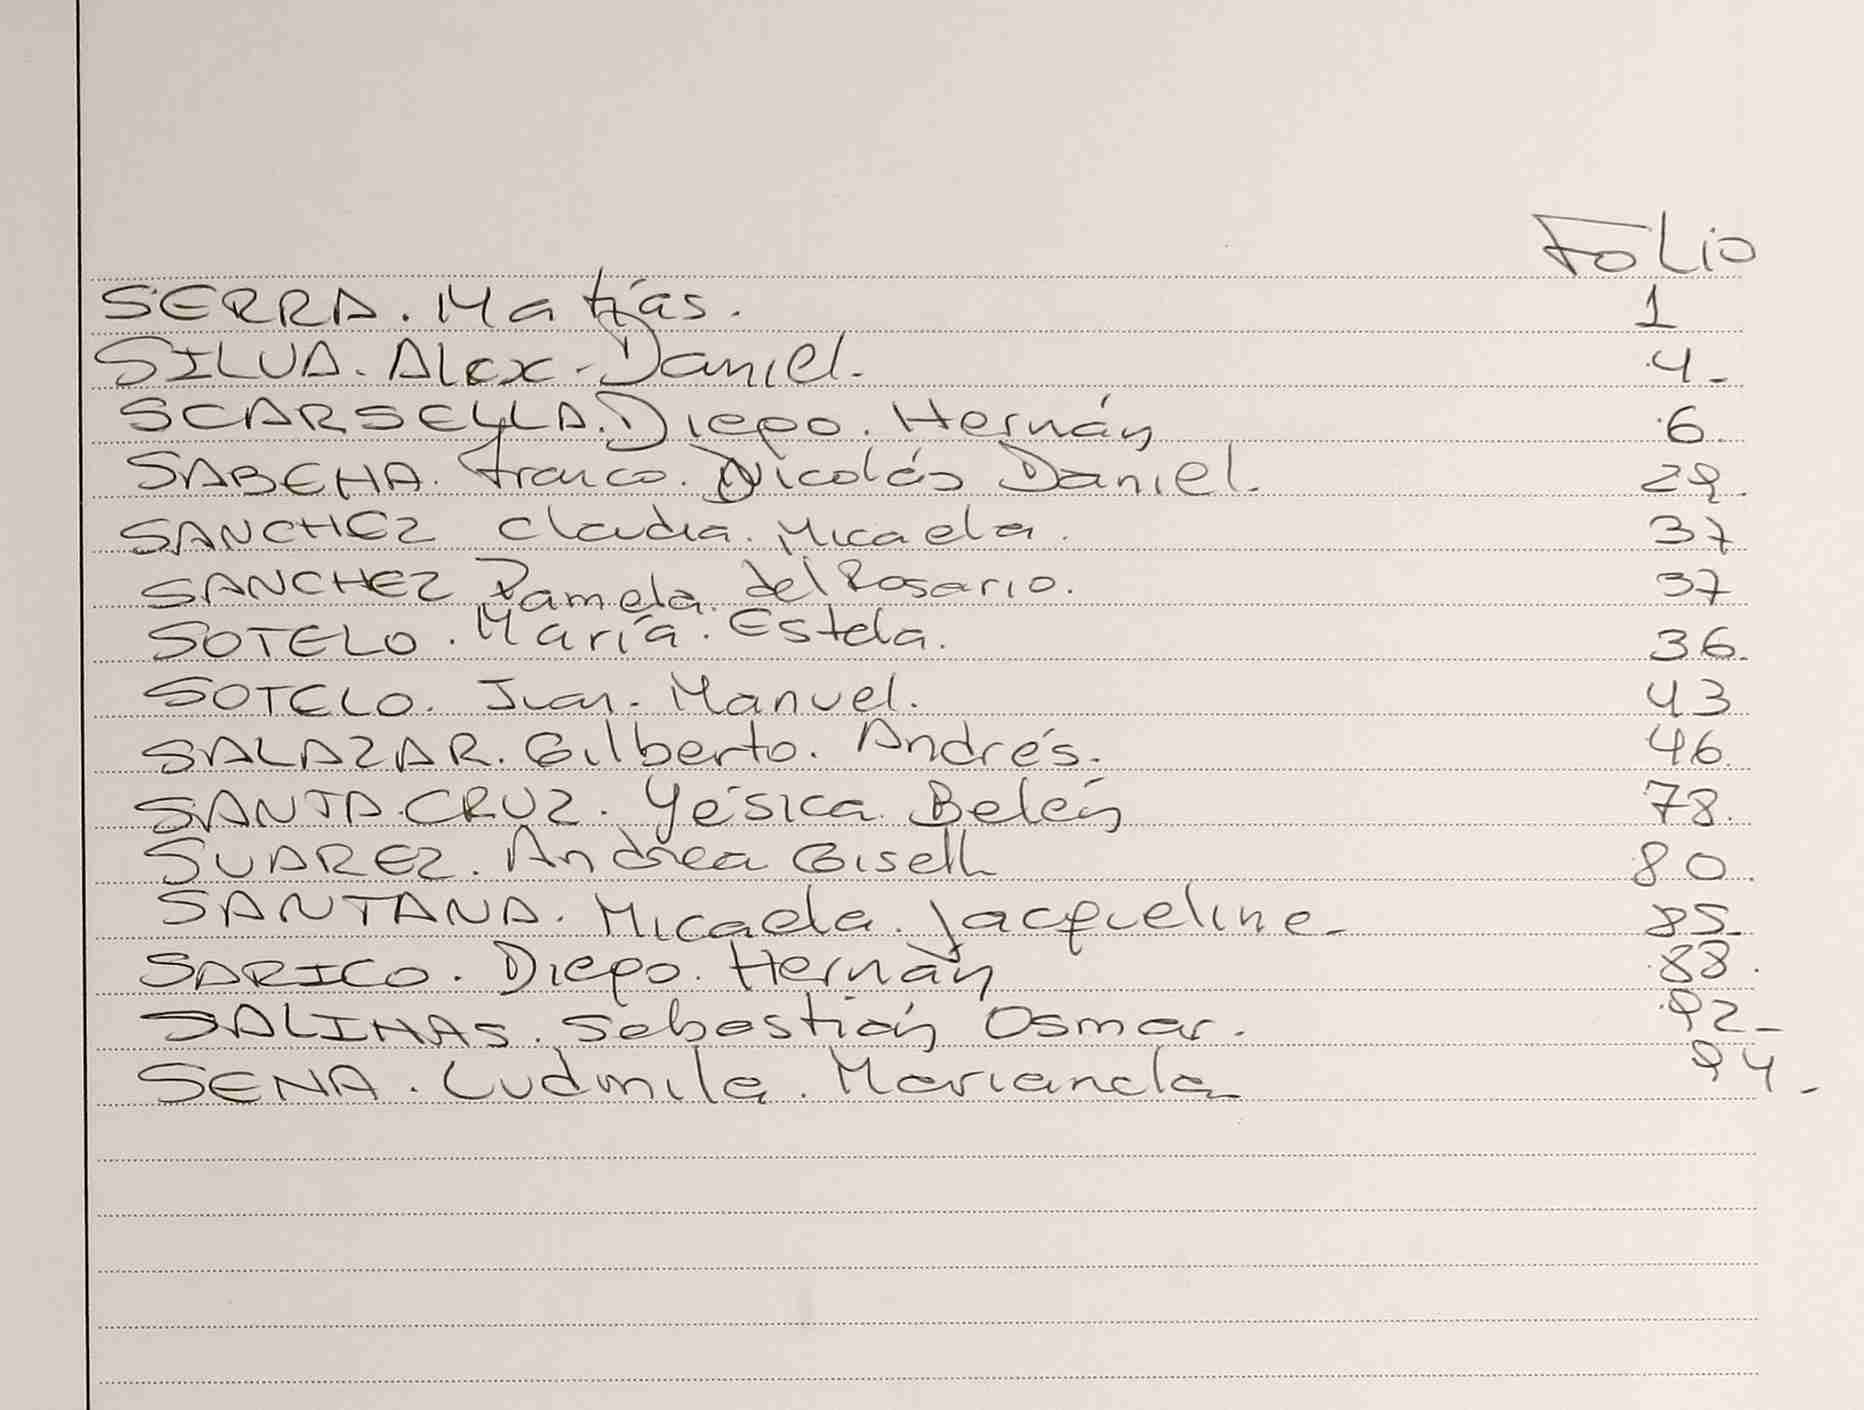 Folio
SERRA. Matías. 1
SILVA. Alex. Daniel. 4
SCARSELLA. Diego. Hernán 6.
SABEHA. Franco. Nicolás Daniel. 29.
SANCHEZ Claudia. Micaela. 37
SANCHEZ Pamela. del Rosario. 37
SOTELO. María. Estela. 36.
SOTELO. Juan. Manuel. 43
SALAZAR. Gilberto. Andrés. 46.
SANTA.CRUZ. Yésica Belén 78.
SUAREZ. Andrea Gisell 80.
SANTANA. Micaela. Jacqueline 85.
SARICO. Diego. Hernán 88.
SALINAS. Sebastián Osmar. 92
SENA. Ludmila. Marianela 94